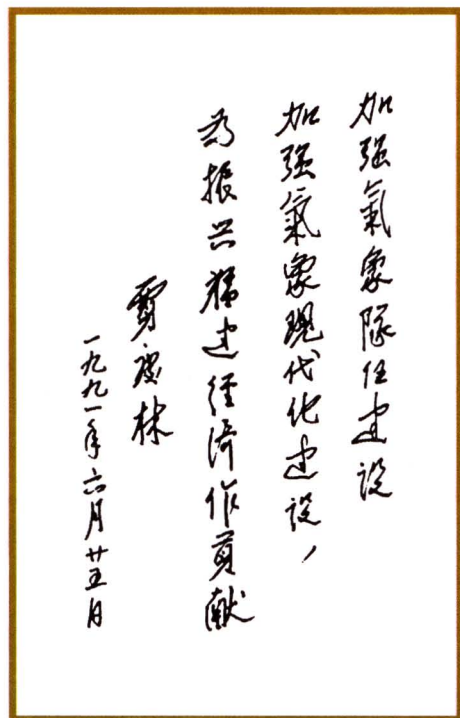 加强氣象隊伍建设
加强氣象现代化建设，
为振兴福建经济作贡献
贾庆林
一九九一年六月廿五日